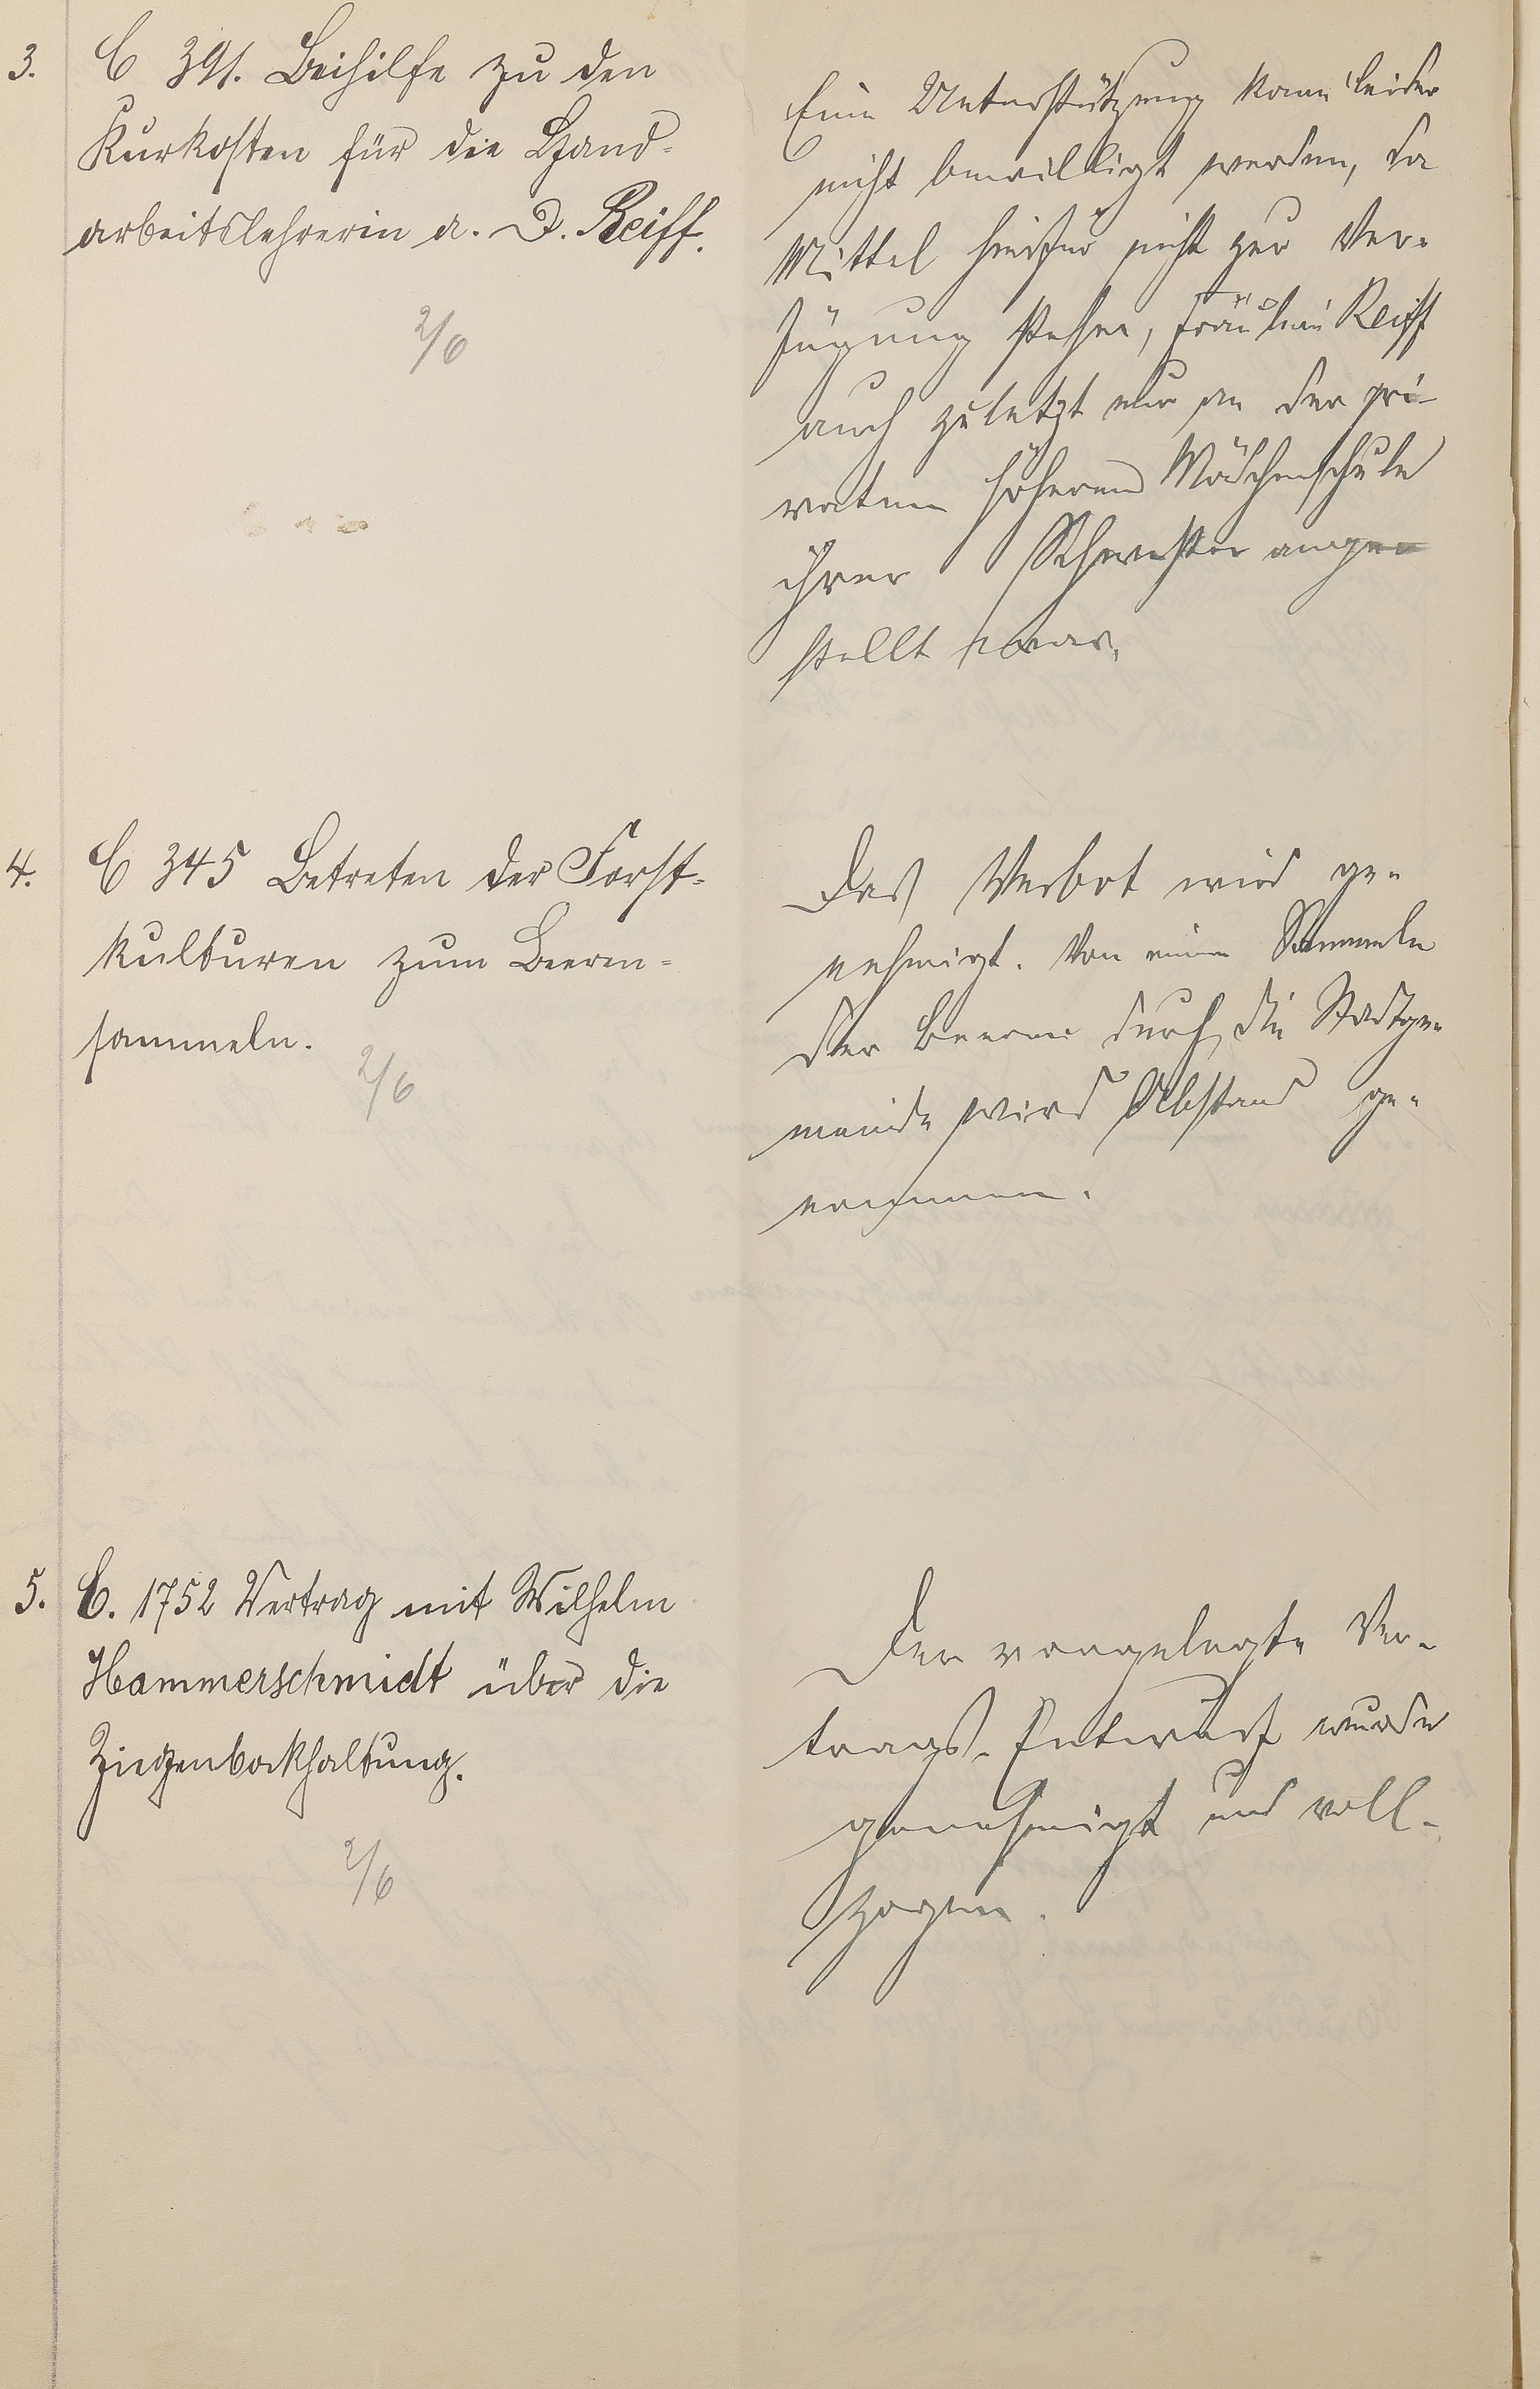 3. C 391. Beihilfe zu den
Kurkosten für die Hand-
arbeitslehrerin a. D. Reiff.
2/6
Eine Unterstützung kann leider
nicht bewilligt werden, da
Mittel hierfür nicht zur Ver-
fügung stehen, Fräulein Reiff
auch zuletzt nur an der pri-
vaten höheren Mädchenschule
ihrer Schwester ange-
stellt war.
4. C 345 Betreten der Forst-
kulturen zum Beeren-
sammeln.
2/6
Das Verbot wird ge-
nehmigt. Von einem Sammeln
der Beeren durch die Stadtge-
meinde wird Abstand ge-
nommen.
5. C. 1752 Vertrag mit Wilhelm
Hammerschmidt über die
Ziegenbockhaltung.
2/6
Der vorgelegte Ver-
trags-Entwurf wurde
genehmigt und voll-
zogen.